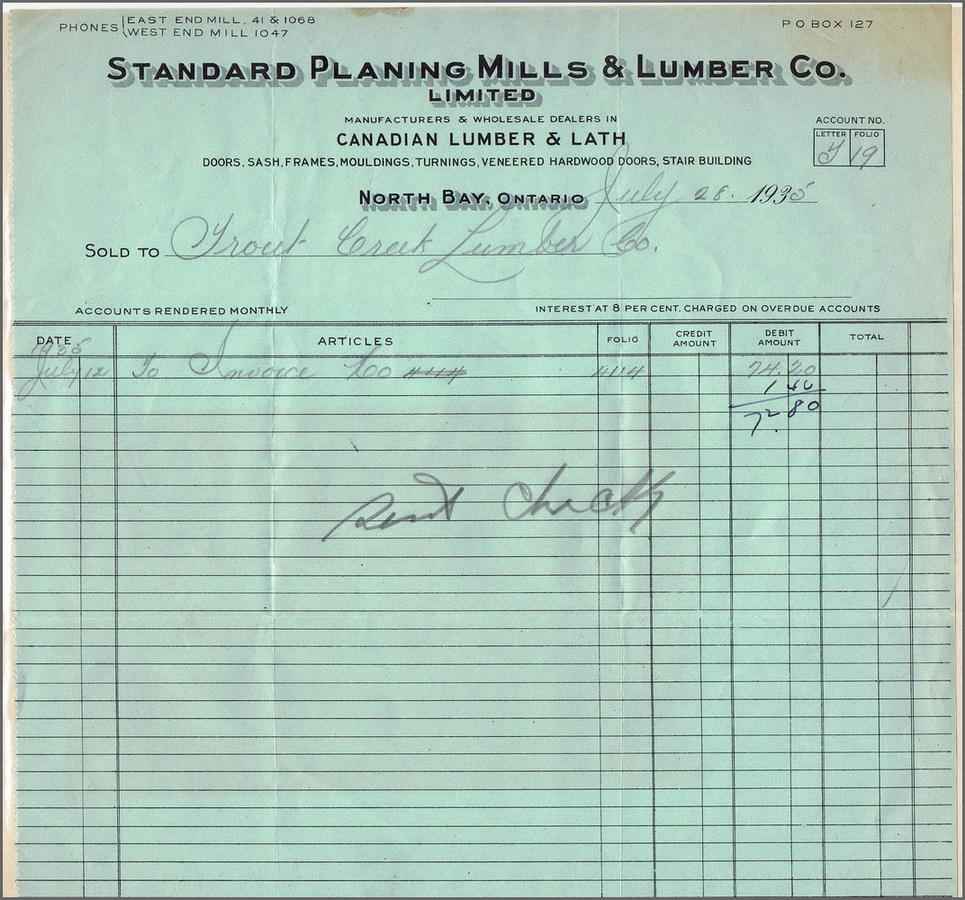 PHONES EAST END MILL, 41 & 1068
WEST END MILL 1047
P O BOX 127
STANDARD PLANING MILLS & LUMBER CO.
LIMITED
MANUFACTURERS & WHOLESALE DEALERS IN
CANADIAN LUMBER & LATH
DOORS, SASH, FRAMES, MOULDINGS, TURNINGS, VENEERED HARDWOOD DOORS, STAIR BUILDING
ACCOUNT NO.
LETTER FOLIO
T 19
NORTH BAY, ONTARIO July 28. 1935
SOLD TO Trout Creek Lumber Co.
ACCOUNTS RENDERED MONTHLY
INTEREST AT 8 PER CENT. CHARGED ON OVERDUE ACCOUNTS
DATE ARTICLES FOLIO CREDIT AMOUNT DEBIT AMOUNT TOTAL
1935
July 12 To Invoice No 4114 74.20
1 40
72.80
sent check